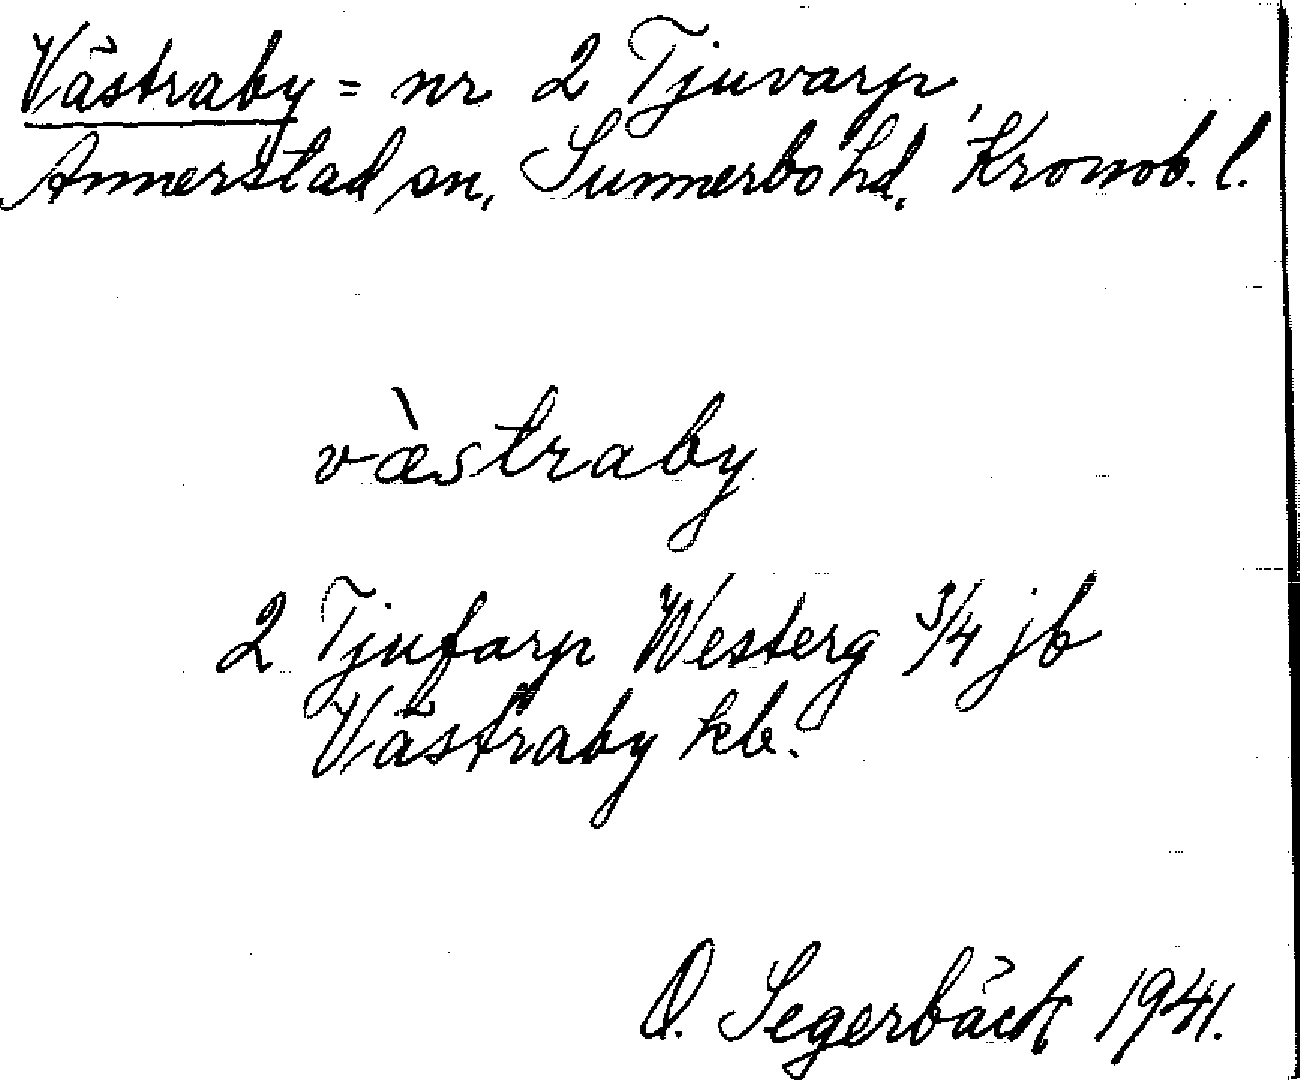 Västraby = nr 2 Tjuvarp
Annerstad sn, Sunnerbo hd, Kronob. l.
væ̀straby
2 Tjufarp Westerg 3/4 jb
Västraby kb.
O. Segerbäck 1941.